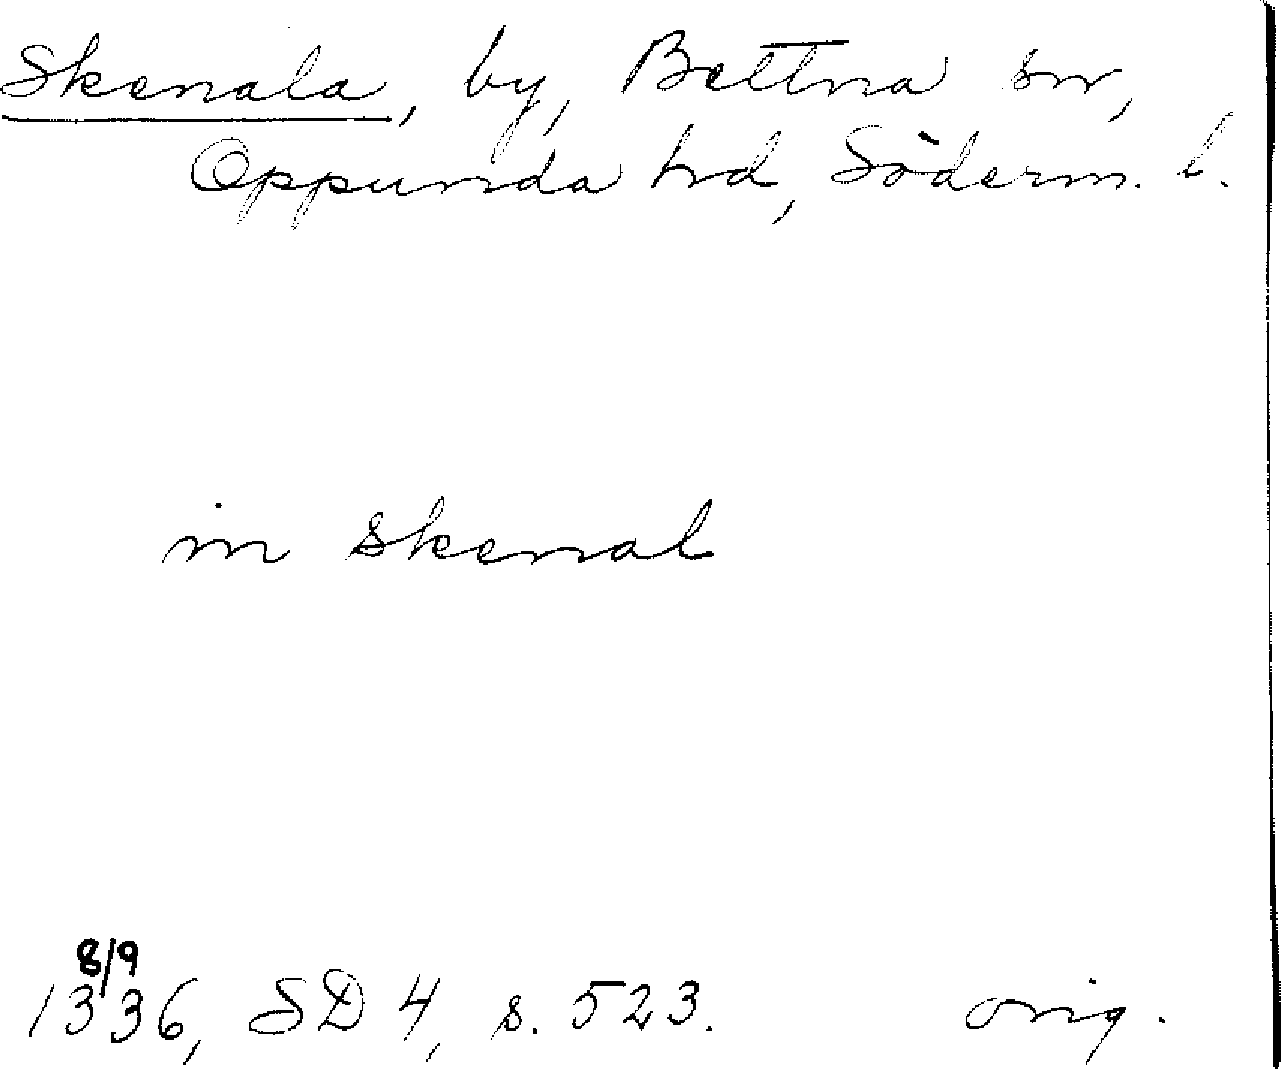 Skenala, by, Bettna sn,
Oppunda hd, Söderm. l.
in skenal
8/9
1336, SD 4, s. 523. orig.